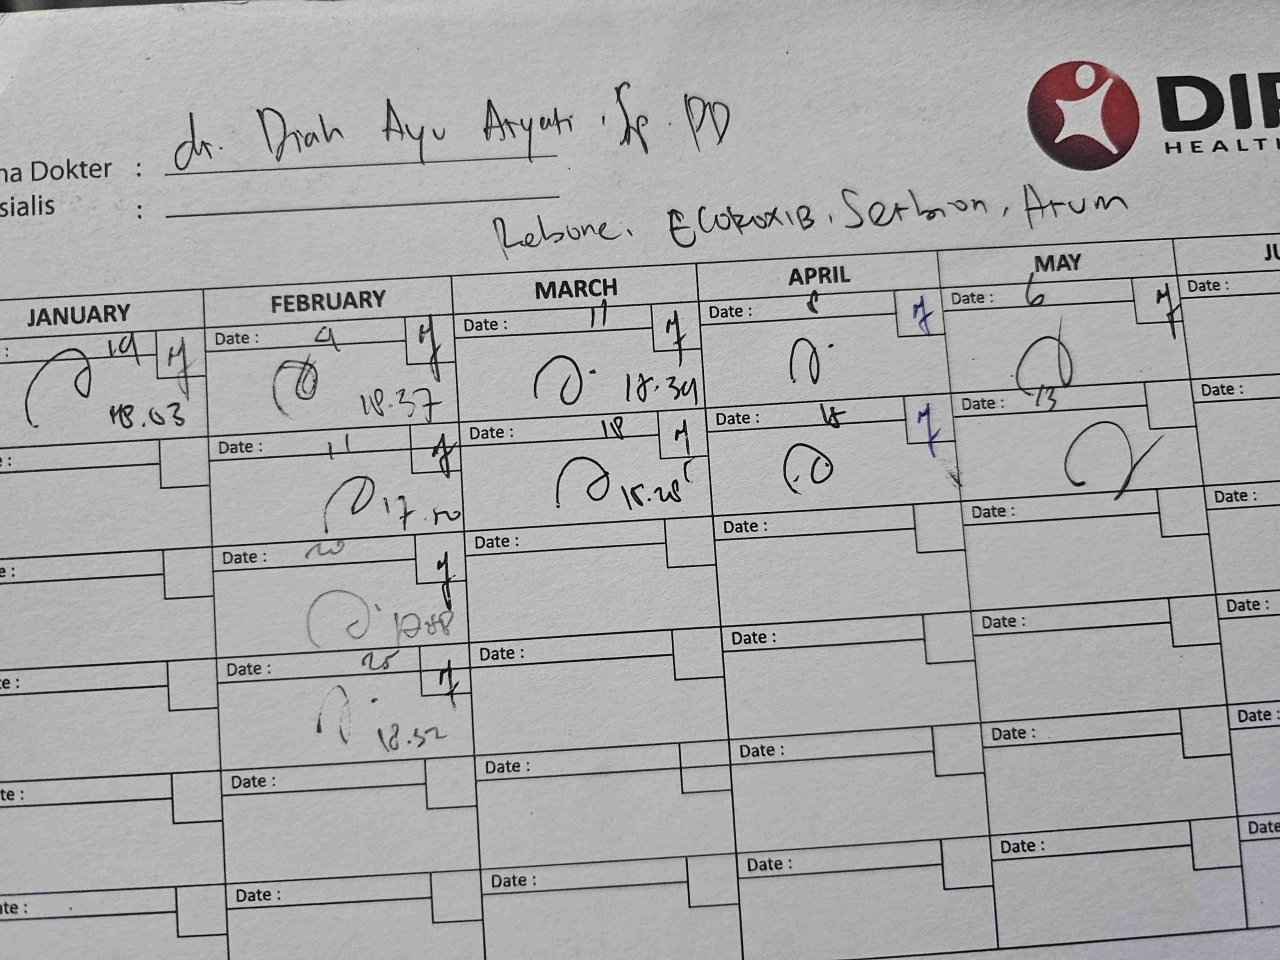 dr. Diah Ayu Aryati, Sp. PD
DIP
HEALTH
na Dokter :
sialis :
Rebone, Ecokoxib, Serbion, Arum
JANUARY FEBRUARY MARCH APRIL MAY JU
: 19 Date : 4 Date : 11 Date : 8 Date : 6 Date :
18.03 18.37 18.39
: Date : 11 Date : 18 Date : 15 Date : 13 Date :
17.50 18.28
e : Date : 20 Date : Date : Date : Date :
e : Date : 25 Date : Date : Date : Date :
18.52
te : Date : Date : Date : Date : Date :
te : Date : Date : Date : Date : Date